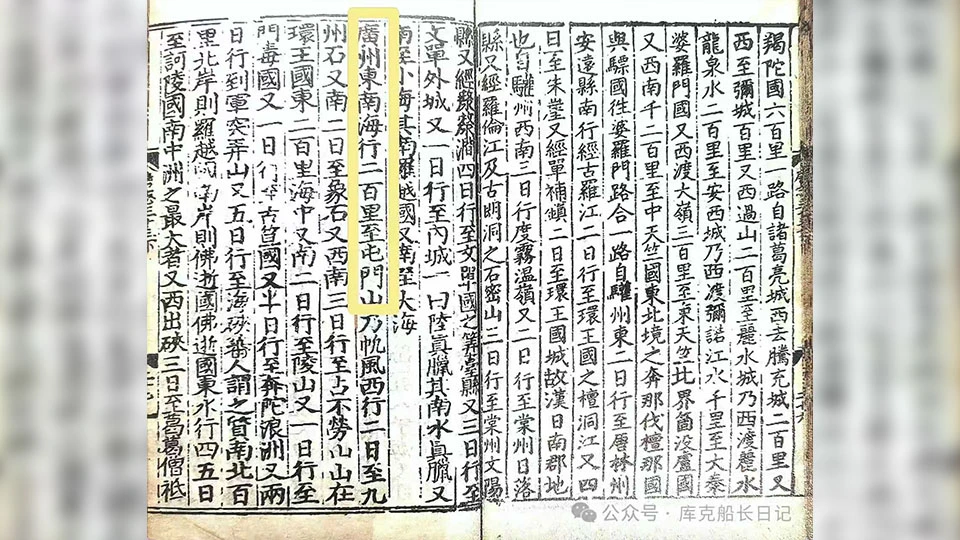 羯陀國六百里一路自諸葛亮城西去騰充城二百里又
西至彌城百里又西過山二百里至麗水城乃西渡麗水
龍泉水二百里至安西城乃西渡彌諾江水千里至大秦
婆羅門國又西渡大嶺三百里至東天竺北界箇沒盧國
又西南千二百里至中天竺國東北境之奔那伐檀那國
與驃國往婆羅門路合一路自驩州東二日行至唐林州
安遠縣南行經古羅江二日行至環王國之檀洞江又四
日至朱崖又經單補鎮二日至環王國城故漢日南郡地
也自驩州西南三日行度霧溫嶺又二日行至棠州日落
縣又經羅倫江及古朗洞之石密山三日行至棠州文陽
縣又經漦漦澗四日行至文單國之算臺縣又三日行至
文單外城又一日行至內城一曰陸真臘其南水真臘又
南至小海其南羅越國又南至大海
廣州東南海行二百里至屯門山乃帆風西行二日至九
州石又南二日至象石又西南三日行至占不勞山山在
環王國東二百里海中又南二日行至陵山又一日行至
門毒國又一日行至古笪國又半日行至奔陀浪洲又兩
日行到軍突弄山又五日行至海硤蕃人謂之質南北百
里北岸則羅越國南岸則佛逝國佛逝國東水行四五日
至訶陵國南中洲之最大者又西出硤三日至葛葛僧祇
公众号·库克船长日记